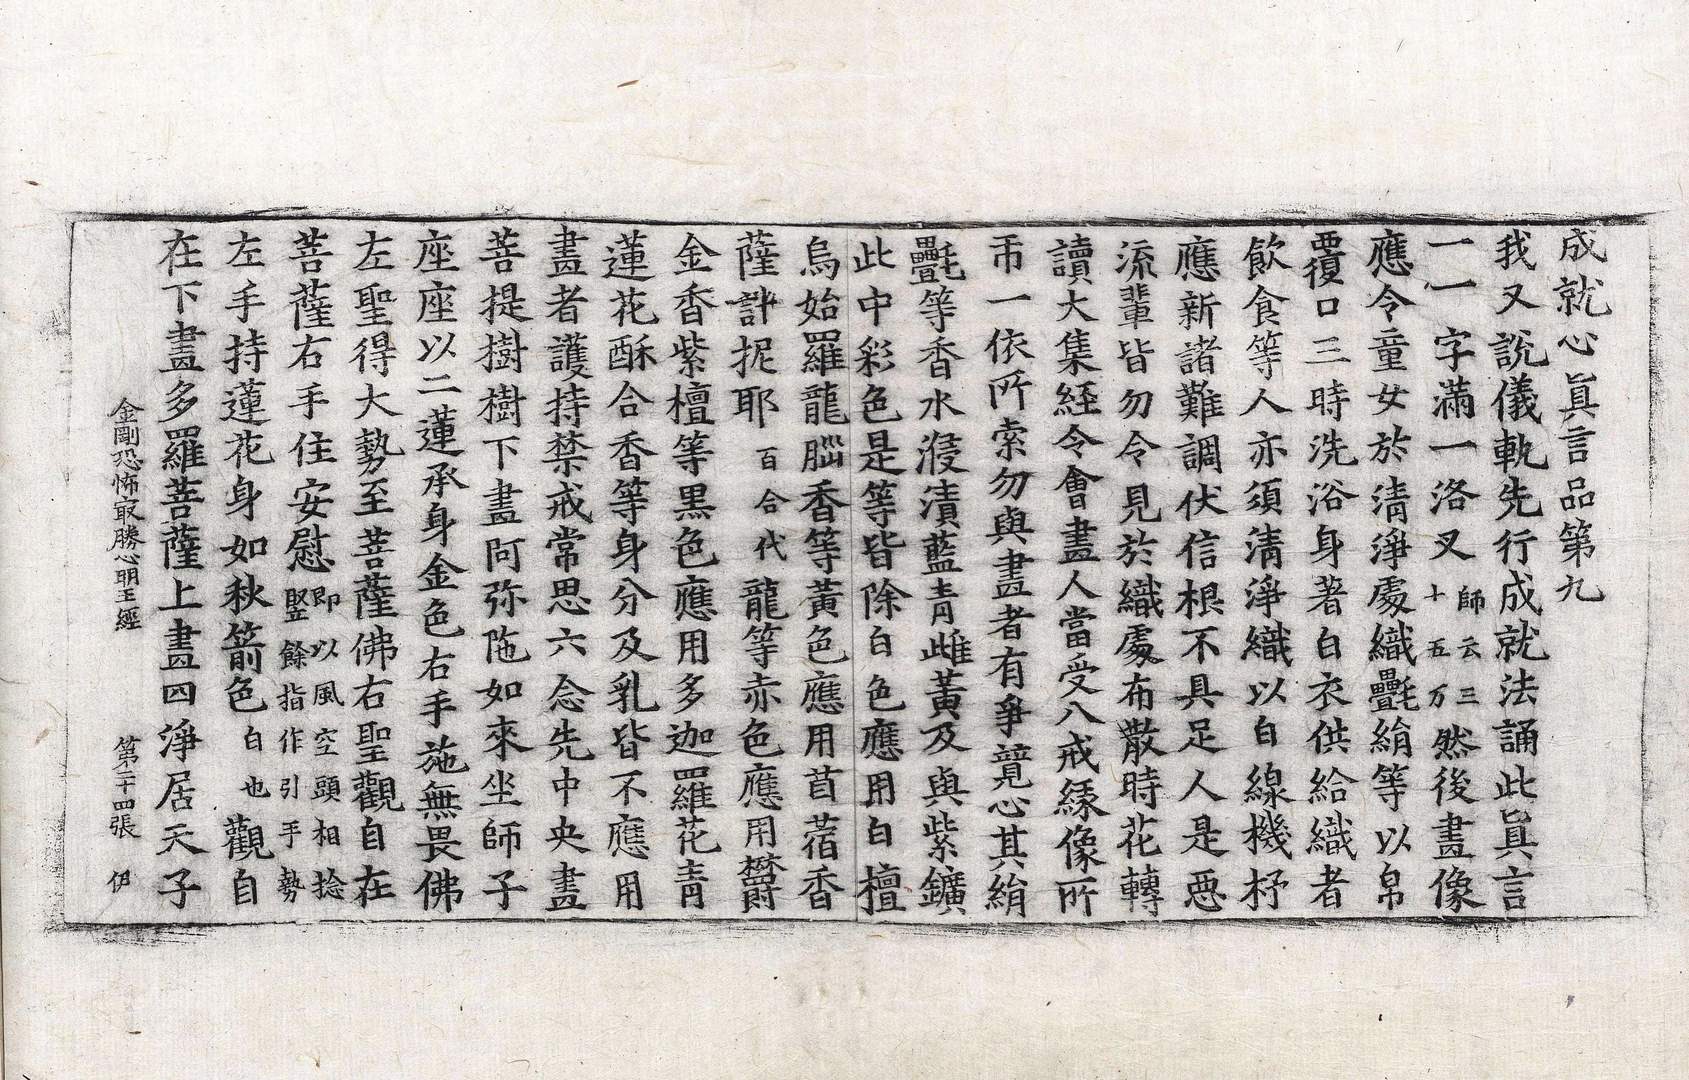 成就心眞言品第九
我又說儀軌先行成就法誦此眞言
一一字滿一洛叉師云三十五万然後畫像
應令童女於清淨處織㲲絹等以帛
覆口三時洗浴身著白衣供給織者
飮食等人亦須清淨織以白線機杼
應新諸難調伏信根不具足人是惡
流輩皆勿令見於織處布散時花轉
讀大集經令會畫人當受八戒緣像所
帀一依所索勿與畫者有爭競心其絹
㲲等香水浸漬藍青雌黃及與紫鑛
此中彩色是等皆除白色應用白檀
烏始羅龍腦香等黃色應用苜蓿香
薩計抳耶百合代龍等赤色應用鬱
金香紫檀等黑色應用多迦羅花青
蓮花酥合香等身分及乳皆不應用
畫者護持禁戒常思六念先中央畫
菩提樹樹下畫阿弥陁如來坐師子
座座以二蓮承身金色右手施無畏佛
左聖得大勢至菩薩佛右聖觀自在
菩薩右手住安慰即以風空頭相捻竪餘指作引手勢
左手持蓮花身如秋箭色白也觀自
在下畫多羅菩薩上畫四淨居天子
金剛恐怖冣勝心明王經 第二十四張 伊